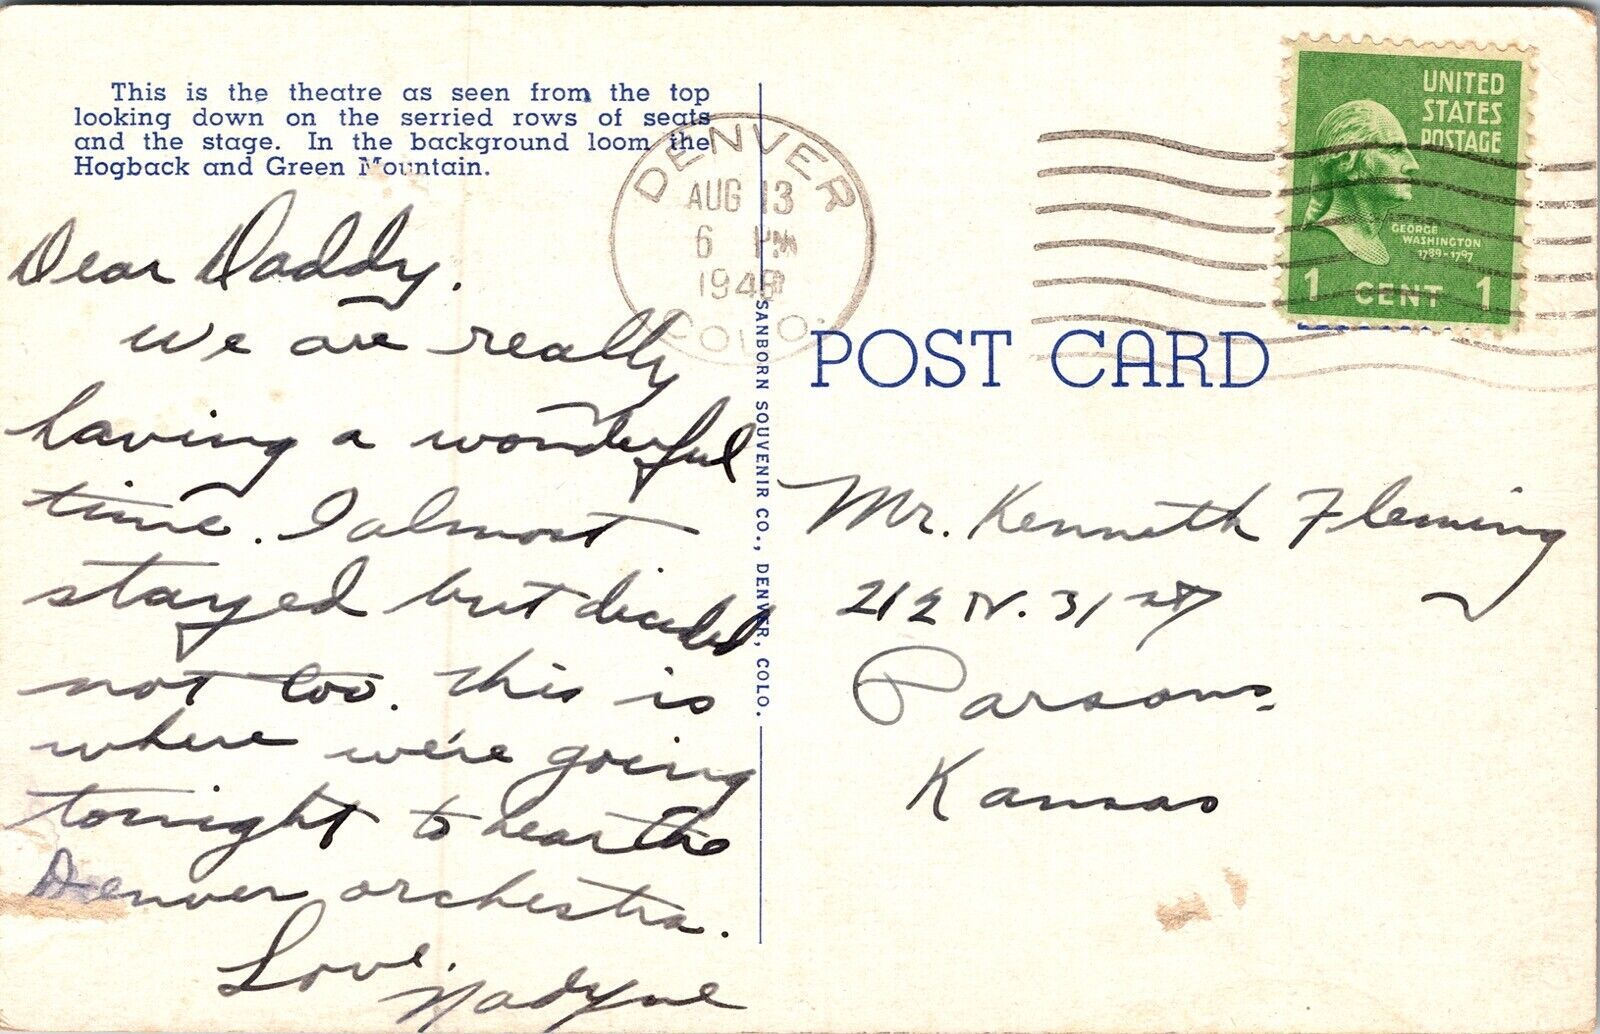 This is the theatre as seen from the top
looking down on the serried rows of seats
and the stage. In the background loom the
Hogback and Green Mountain.
Dear Daddy,
We are really
having a wonderful
time. I almost
stayed but decided
not too. This is
where we're going
tonight to hear the
Denver orchestra.
Love,
Nadyne
DENVER
AUG 13
6 PM
194
COLO.
SANBORN SOUVENIR CO., DENVER, COLO.
UNITED
STATES
POSTAGE
GEORGE
WASHINGTON
1789-1797
1 CENT 1
POST CARD
Mr. Kenneth Fleming
212 N. 31st
Parsons,
Kansas